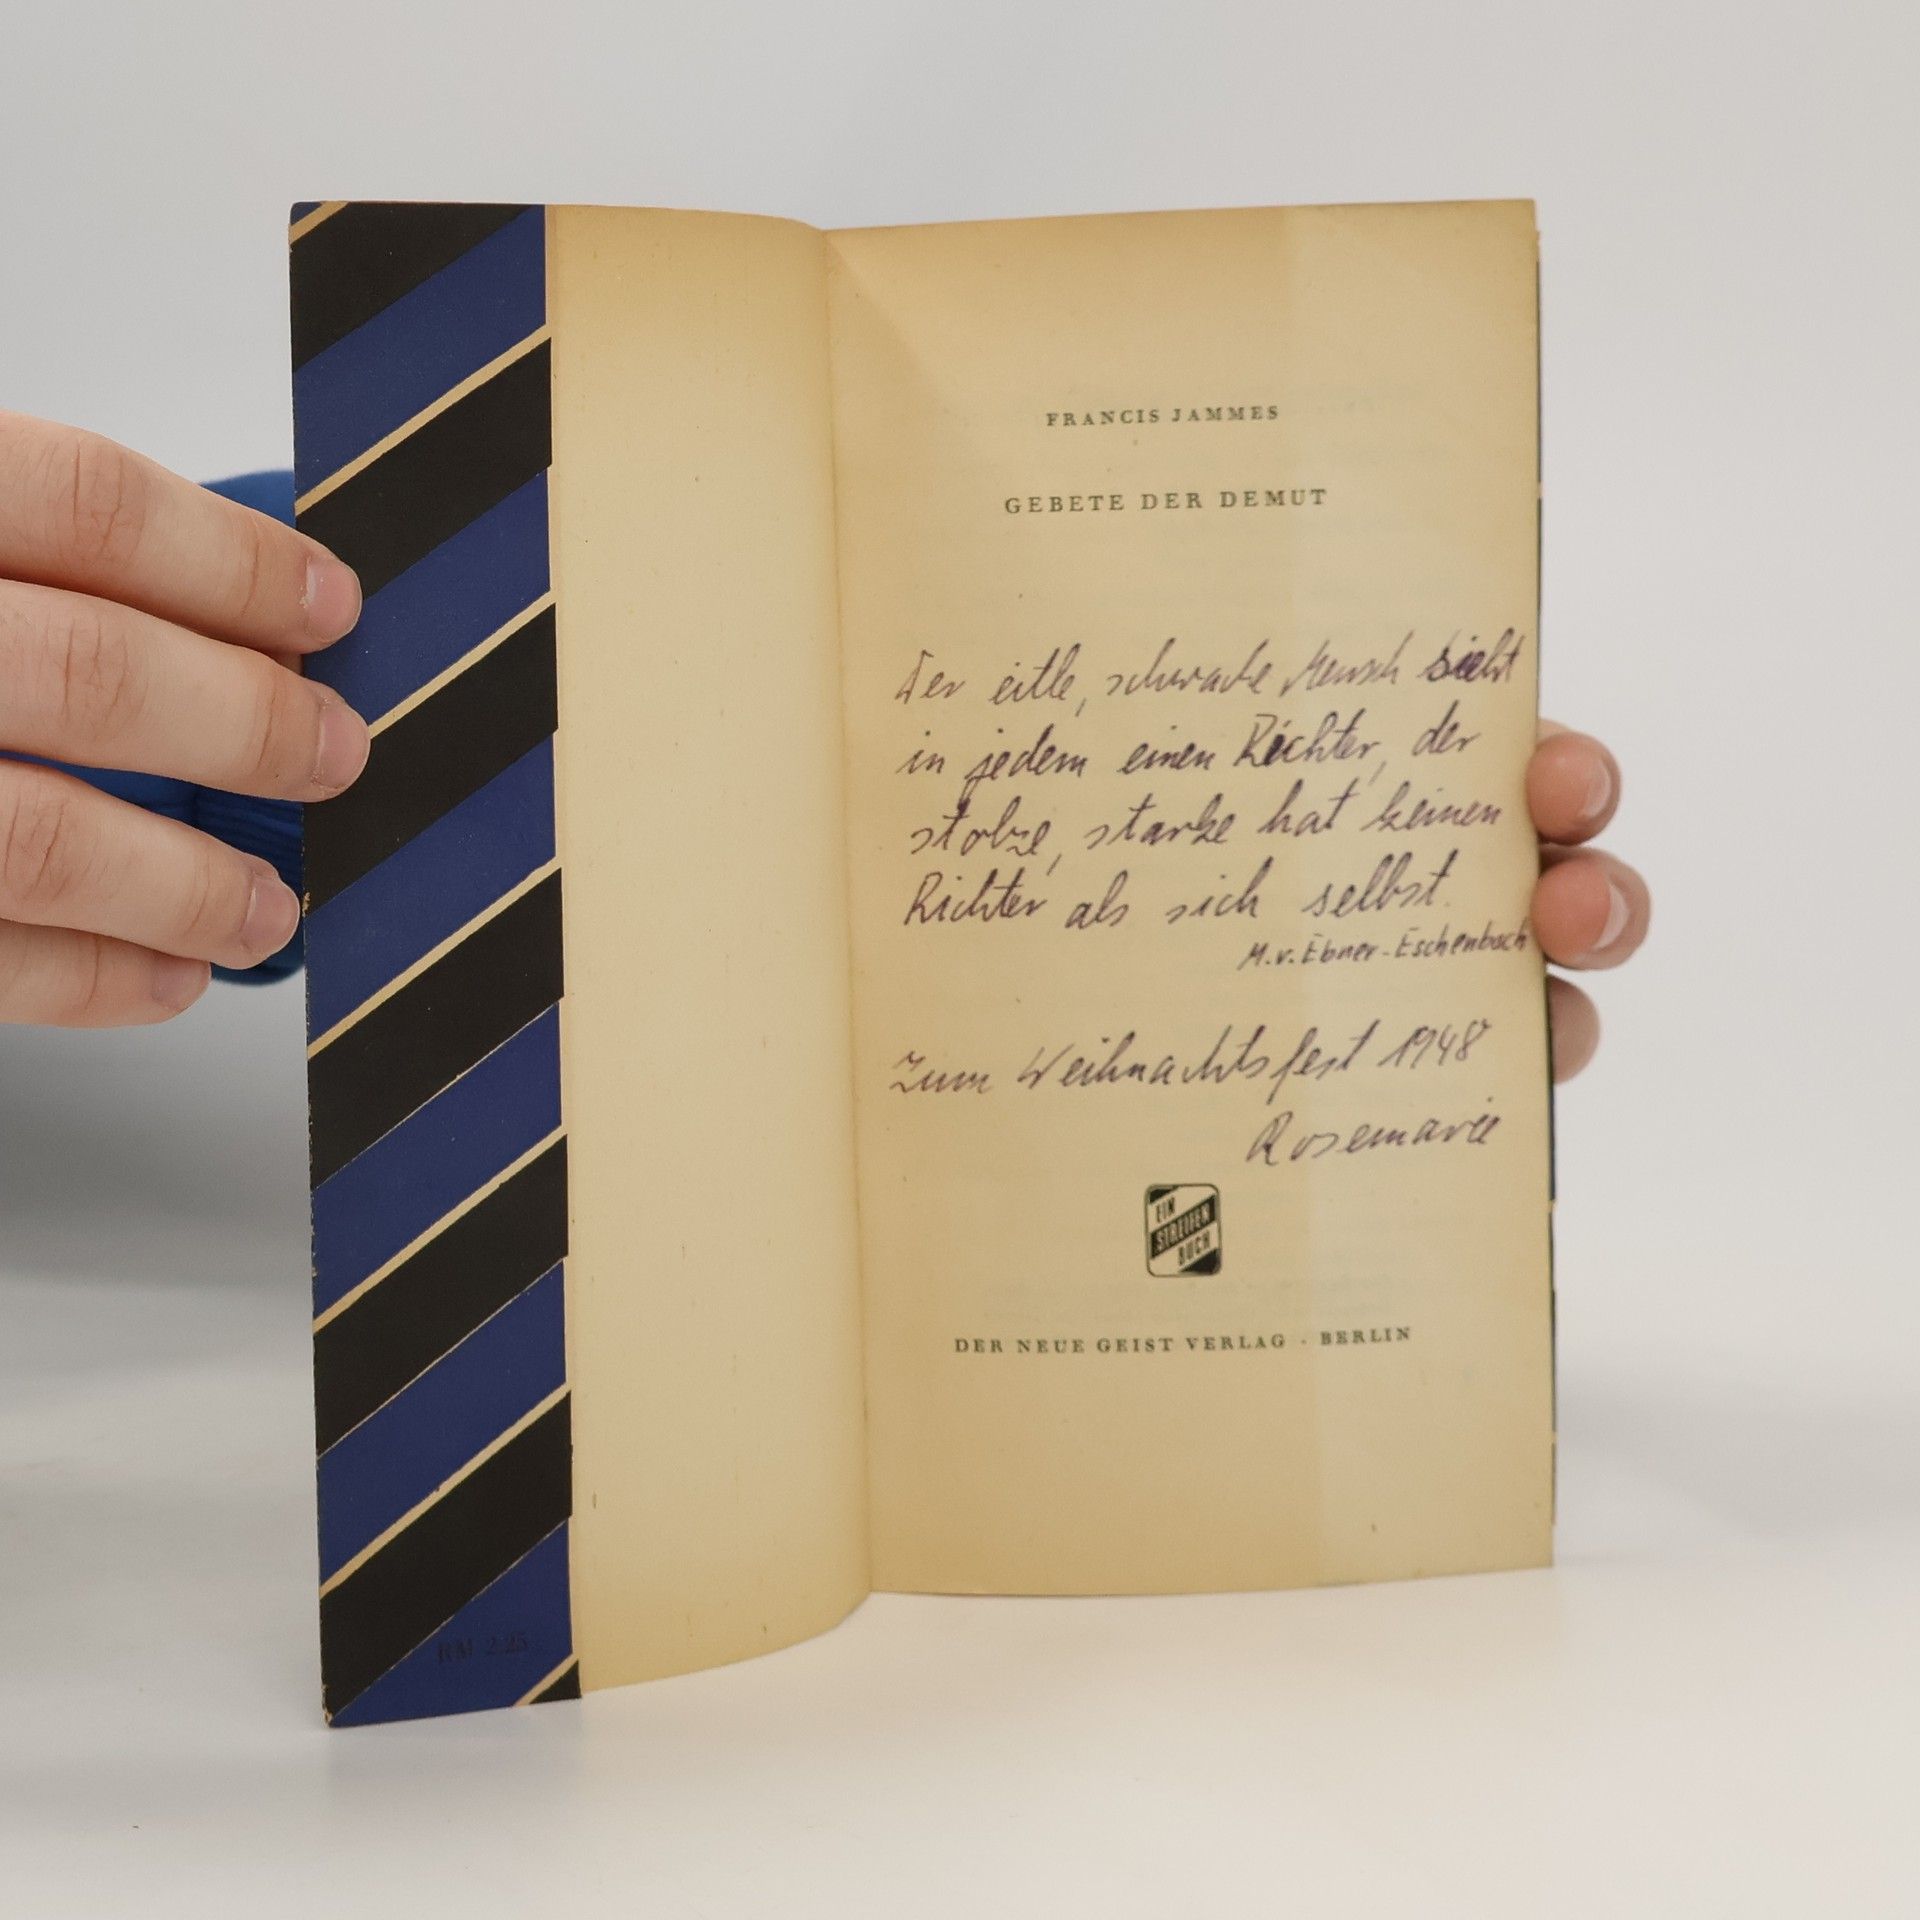 FRANCIS JAMMES
GEBETE DER DEMUT
Der eitle, schwache Mensch sieht
in jedem einen Richter, der
stolze, starke hat keinen
Richter als sich selbst.
M.v. Ebner-Eschenbach
Zum Weihnachtsfest 1948
Rosemarie
EIN
STREIFEN
BUCH
DER NEUE GEIST VERLAG · BERLIN
RM 2.25